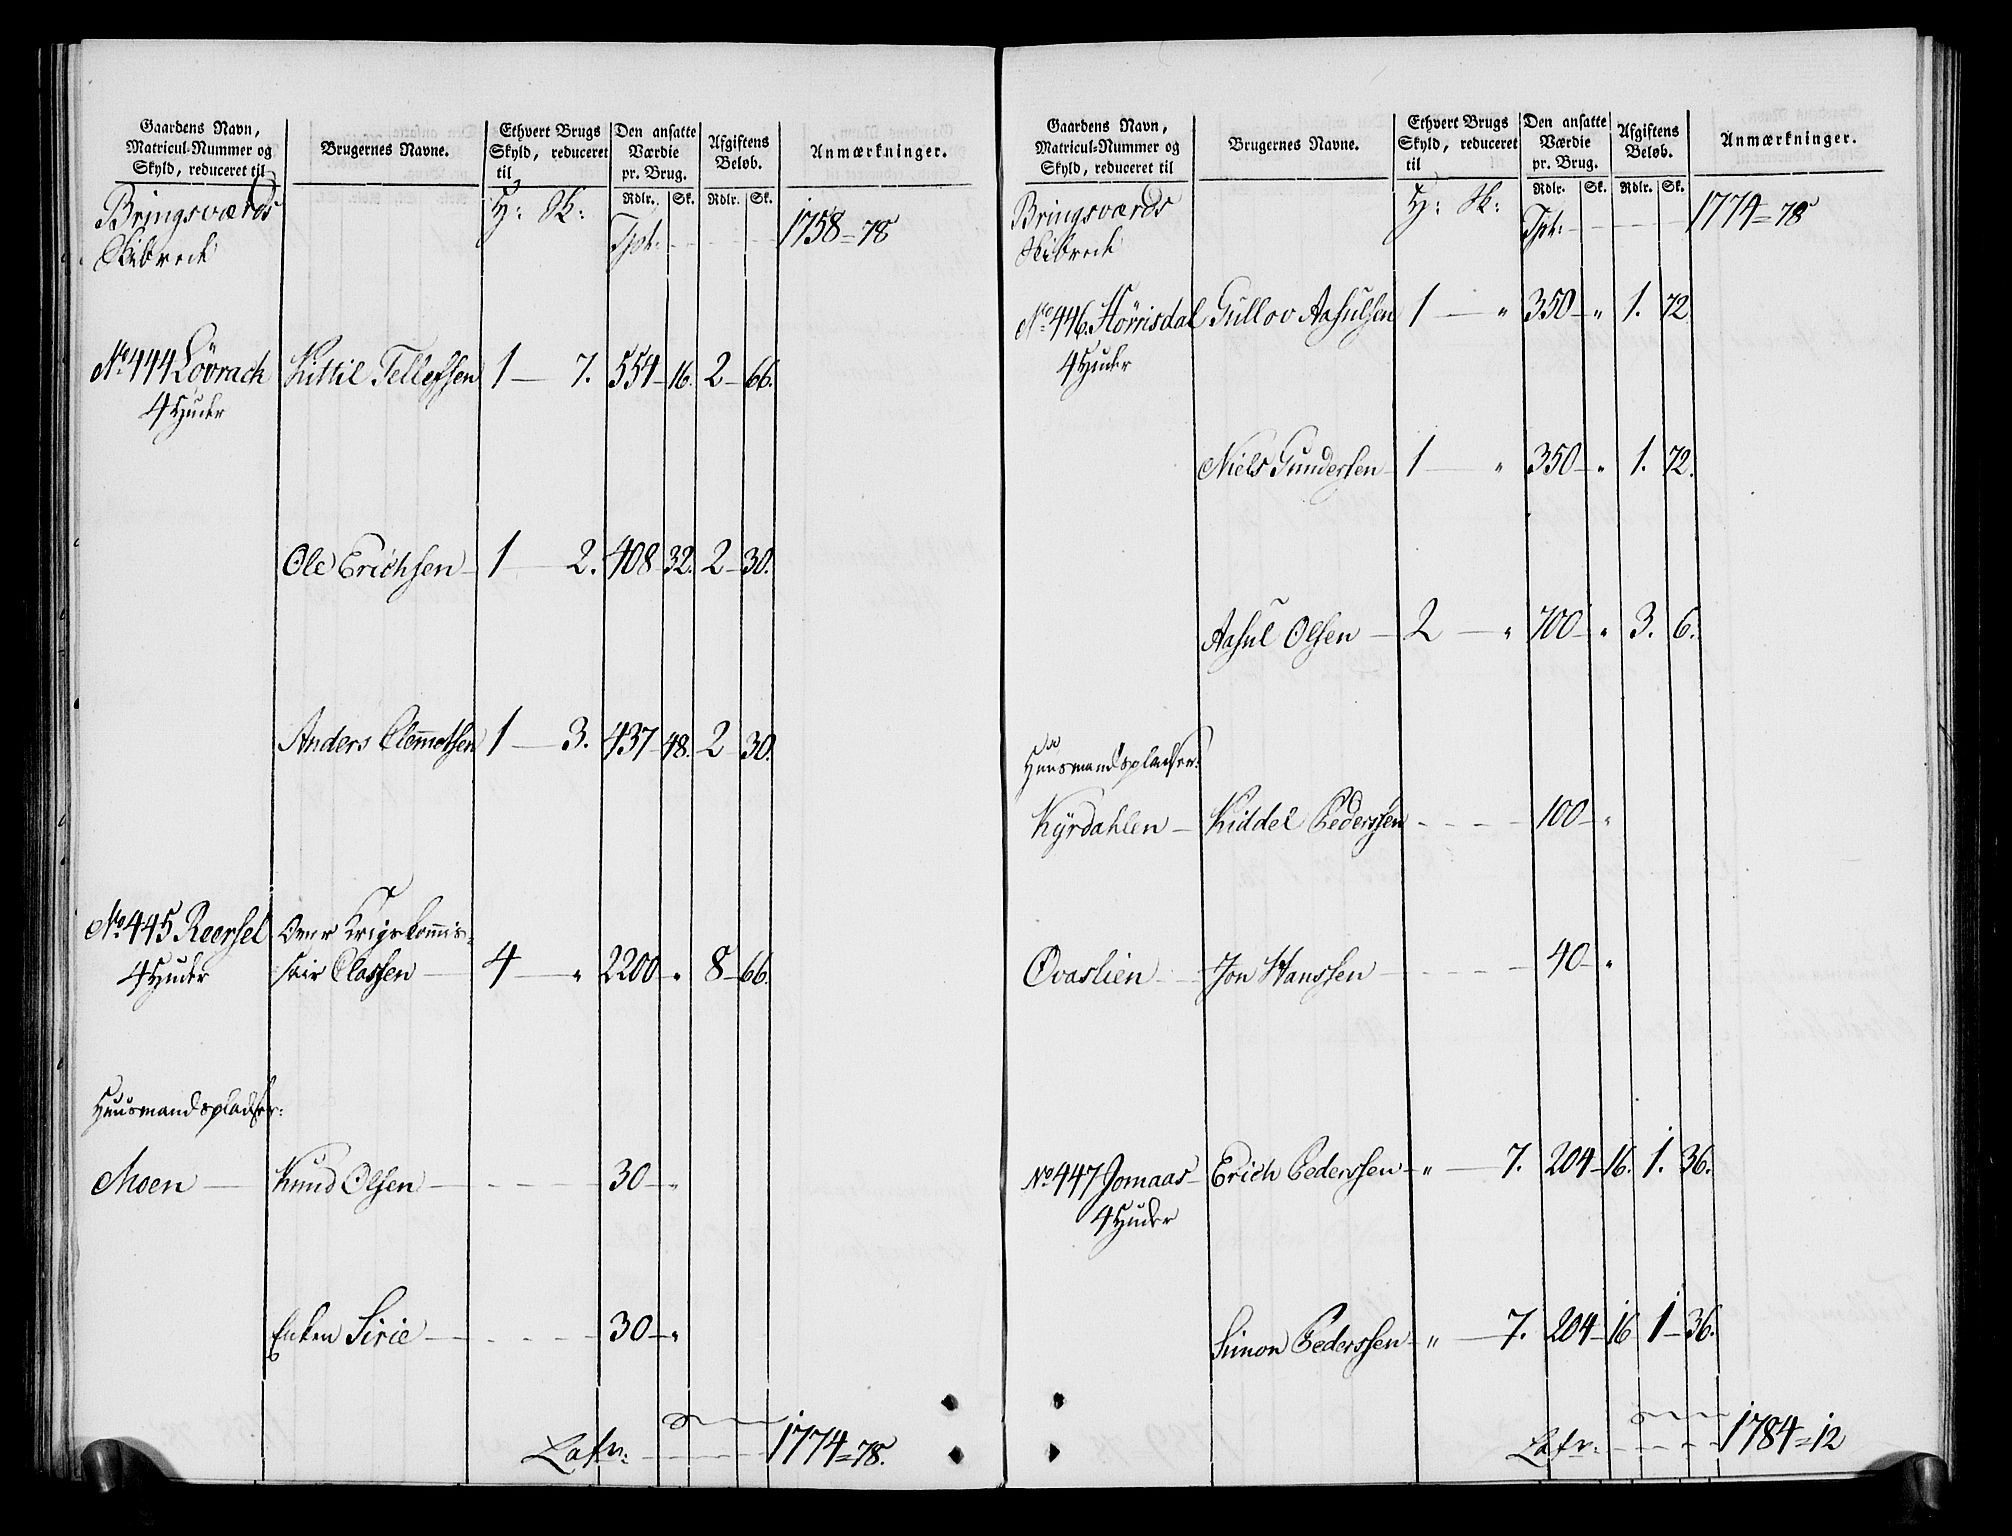 Gaardens Navn, Matricul-Nummer og Skyld, reduceret til | Brugernes Navne. | Ethvert Brugs Skyld, reduceret til | Den ansatte Værdie pr. Brug. | Afgiftens Beløb. | Anmærkninger.
Rdlr. | Sk. | Rdlr. | Sk.
Bringsværds H: Sk: Tpt: 1758=78
Skibrede
No. 444 Lövrach Kittil Tellefsen 1 — 7. 554 — 16. 2 — 66.
4 Huder
Ole Erichsen — 1 — 2. 408 — 32. 2 — 30.
Anders Clemetsen 1 — 3. 437 — 48. 2 — 30.
No. 445 Reersel Over Krigskommis=
4 Huder sair Classen — 4 — " 2200 — " 8 — 66.
Huusmandspladser:
Moen — Knud Olsen — 30 — "
Enken Sirie — 30 — "
Lafr: 1774=78.
Gaardens Navn, Matricul-Nummer og Skyld, reduceret til | Brugernes Navne. | Ethvert Brugs Skyld, reduceret til | Den ansatte Værdie pr. Brug. | Afgiftens Beløb. | Anmærkninger.
Rdlr. | Sk. | Rdlr. | Sk.
Bringsværds H: Sk: Tpt: 1774=78
Skibrede
No. 446. Hörrisdal Gullov Aasulsen 1 — " 350 — " 1. 72.
4 Huder
Niels Gundersen — 1 — " 350 — " 1. 72.
Aasul Olsen — 2 — " 700 — " 3. 6.
Huusmandspladser:
Kÿrdahlen — Kiddel Pedersen 100 — "
Ovaslien — Jon Hanssen — 40 — "
No. 447 Jomaas — Erich Pederssen — " — 7. 204 — 16. 1. 36.
4 Huder
Simon Pederssen — " — 7. 204 — 16 1 — 36.
Lafr: 1784=12